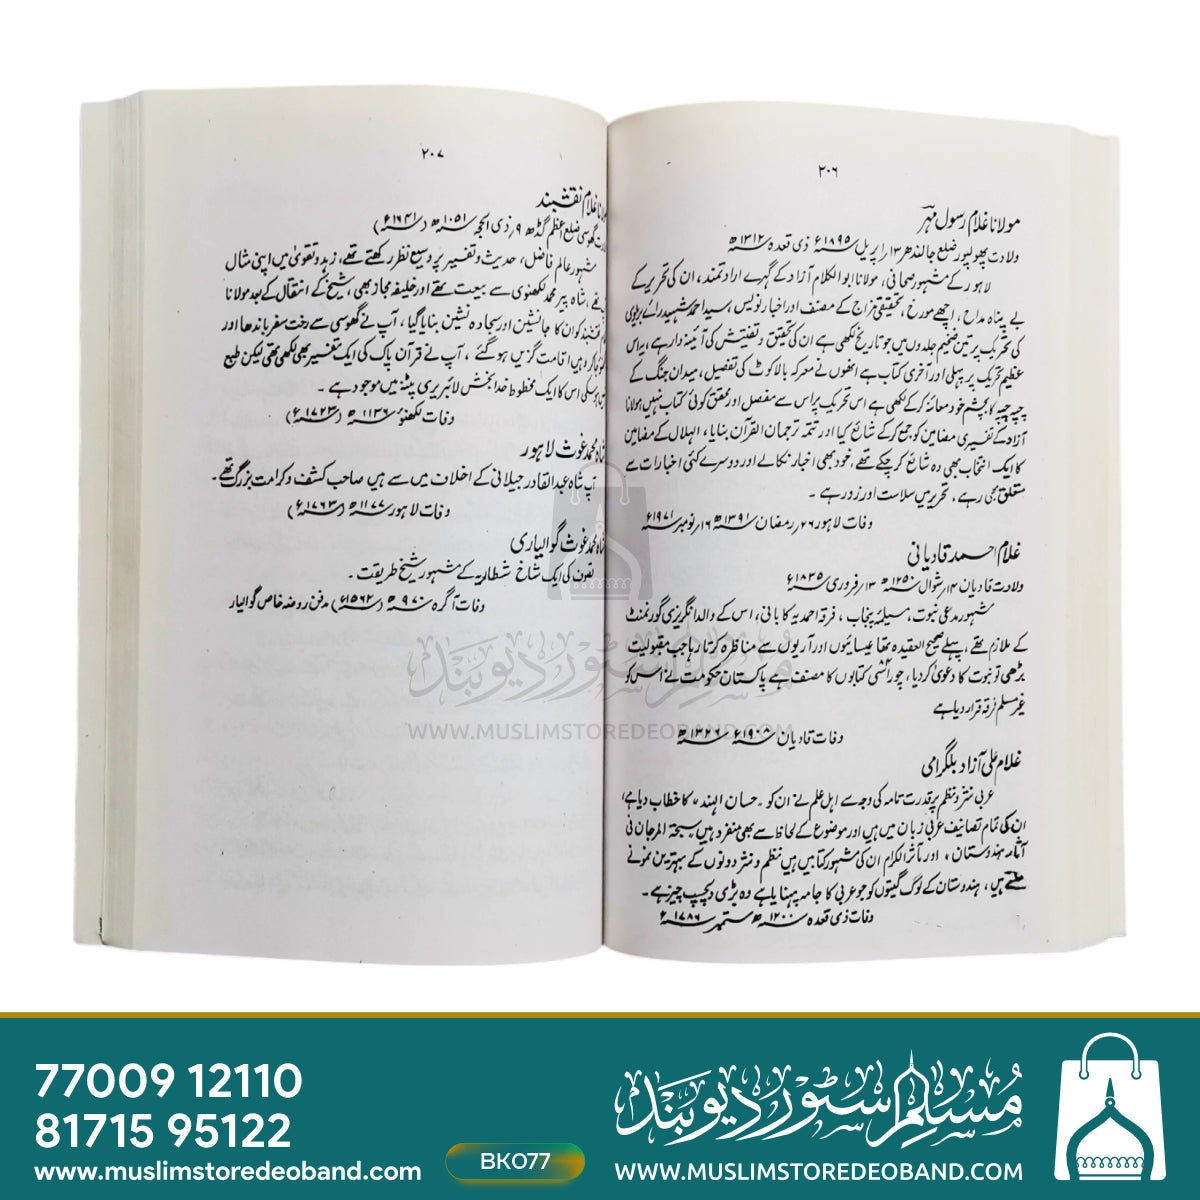 ۲۰۶
مولانا غلام رسول مہر
ولادت پھولپور ضلع جالندھر ۱۳ اپریل ۱۸۹۵ء ذی قعدہ ۱۳۱۲ھ
لاہور کے مشہور صحافی، مولانا ابوالکلام آزاد کے گہرے ارادتمند، ان کی تحریر کے
بے پناہ مداح، اچھے مورخ، تحقیقی مزاج کے مصنف اور اخبار نویس، سید احمد شہید رائے بریلوی
کی تحریک پر تین ضخیم جلدوں میں جو تاریخ لکھی ہے ان کی تحقیق و تفتیش کی آئینہ دار ہے، یہ اس
عظیم تحریک پر پہلی اور آخری کتاب ہے انھوں نے معرکہ بالاکوٹ کی تفصیل، میدان جنگ کے
چپہ چپہ کا بچشم خود معائنہ کر کے لکھی ہے اس تحریک پر اس سے مفصل اور محقق کوئی کتاب نہیں مولانا
آزاد کے تفسیری مضامین کو جمع کر کے شائع کیا اور تتمہ ترجمان القرآن بنایا، الہلال کے مضامین
کا ایک انتخاب بھی وہ شائع کر چکے تھے، خود بھی اخبار نکالے اور دوسرے کئی اخبارات سے
متعلق بھی رہے، تحریر میں سلاست اور زور ہے ۔
وفات لاہور ۲۶ رمضان ۱۳۹۱ھ ۱۶ نومبر ۱۹۷۱ء
غلام احمد قادیانی
ولادت قادیان ۱۴ شوال ۱۲۵۰ھ ۱۳ فروری ۱۸۳۵ء
مشہور مدعی نبوت، مسیلمۂ پنجاب، فرقہ احمدیہ کا بانی، اس کے والد انگریزی گورنمنٹ
کے ملازم تھے، پہلے صحیح العقیدہ تھا عیسائیوں اور آریوں سے مناظرہ کرتا رہا جب مقبولیت
بڑھی تو نبوت کا دعویٰ کر دیا، چوراسی کتابوں کا مصنف ہے پاکستان حکومت نے اس کو
غیر مسلم فرقہ قرار دیا ہے
وفات قادیان ۱۹۰۸ء ۱۳۲۶ھ
غلام علی آزاد بلگرامی
عربی نثر و نظم پر قدرت تامہ کی وجہ سے اہل علم نے ان کو "حسان الہند" کا خطاب دیا ہے،
ان کی تمام تصانیف عربی زبان میں ہیں اور موضوع کے لحاظ سے بھی منفرد ہیں، سبحۃ المرجان فی
آثار ہندوستان، اور مآثر الکرام ان کی مشہور کتابیں ہیں نظم و نثر دونوں کے بہترین نمونے
ملتے ہیں، ہندوستان کے لوگ گیتوں کو جو عربی کا جامہ پہنایا ہے وہ بڑی دلچسپ چیز ہے ۔
وفات ذی قعدہ ۱۲۰۰ھ ستمبر ۱۷۸۶ء
۲۰۷
غلام نقشبند
گھوسی ضلع اعظم گڈھ ۹ ذی الحجہ ۱۰۵۱ھ (۱۶۴۱ء)
مشہور عالم فاضل، حدیث و تفسیر پر وسیع نظر رکھتے تھے، زہد و تقویٰ میں اپنی مثال
تھے، شاہ پیر محمد لکھنوی سے بیعت تھے اور خلیفہ مجاز بھی، شیخ کے انتقال کے بعد مولانا
نقشبند کو ان کا جانشین اور سجادہ نشین بنایا گیا، آپ نے گھوسی سے رخت سفر باندھا اور
جا کر وہیں اقامت گزیں ہو گئے، آپ نے قرآن پاک کی ایک تفسیر بھی لکھی تھی لیکن طبع
نہ ہو سکی اس کا ایک مخطوطہ خدا بخش لائبریری پٹنہ میں موجود ہے ۔
وفات لکھنؤ ۱۱۳۶ھ (۱۷۲۳ء)
شاہ محمد غوث لاہور
آپ شاہ عبد القادر جیلانی کے اخلاف میں سے ہیں صاحب کشف و کرامت بزرگ تھے ۔
وفات لاہور ۱۱۷۷ھ (۱۷۶۳ء)
شاہ محمد غوث گوالیاری
تصوف کی ایک شاخ شطاریہ کے مشہور شیخ طریقت ۔
وفات آگرہ ۹۷۰ھ (۱۵۶۲ء) مدفن روضہ خاص گوالیار
مسلم سٹور دیوبند
WWW.MUSLIMSTOREDEOBAND.COM
77009 12110
81715 95122
www.muslimstoredeoband.com
BK077
مسلم سٹور دیوبند
WWW.MUSLIMSTOREDEOBAND.COM